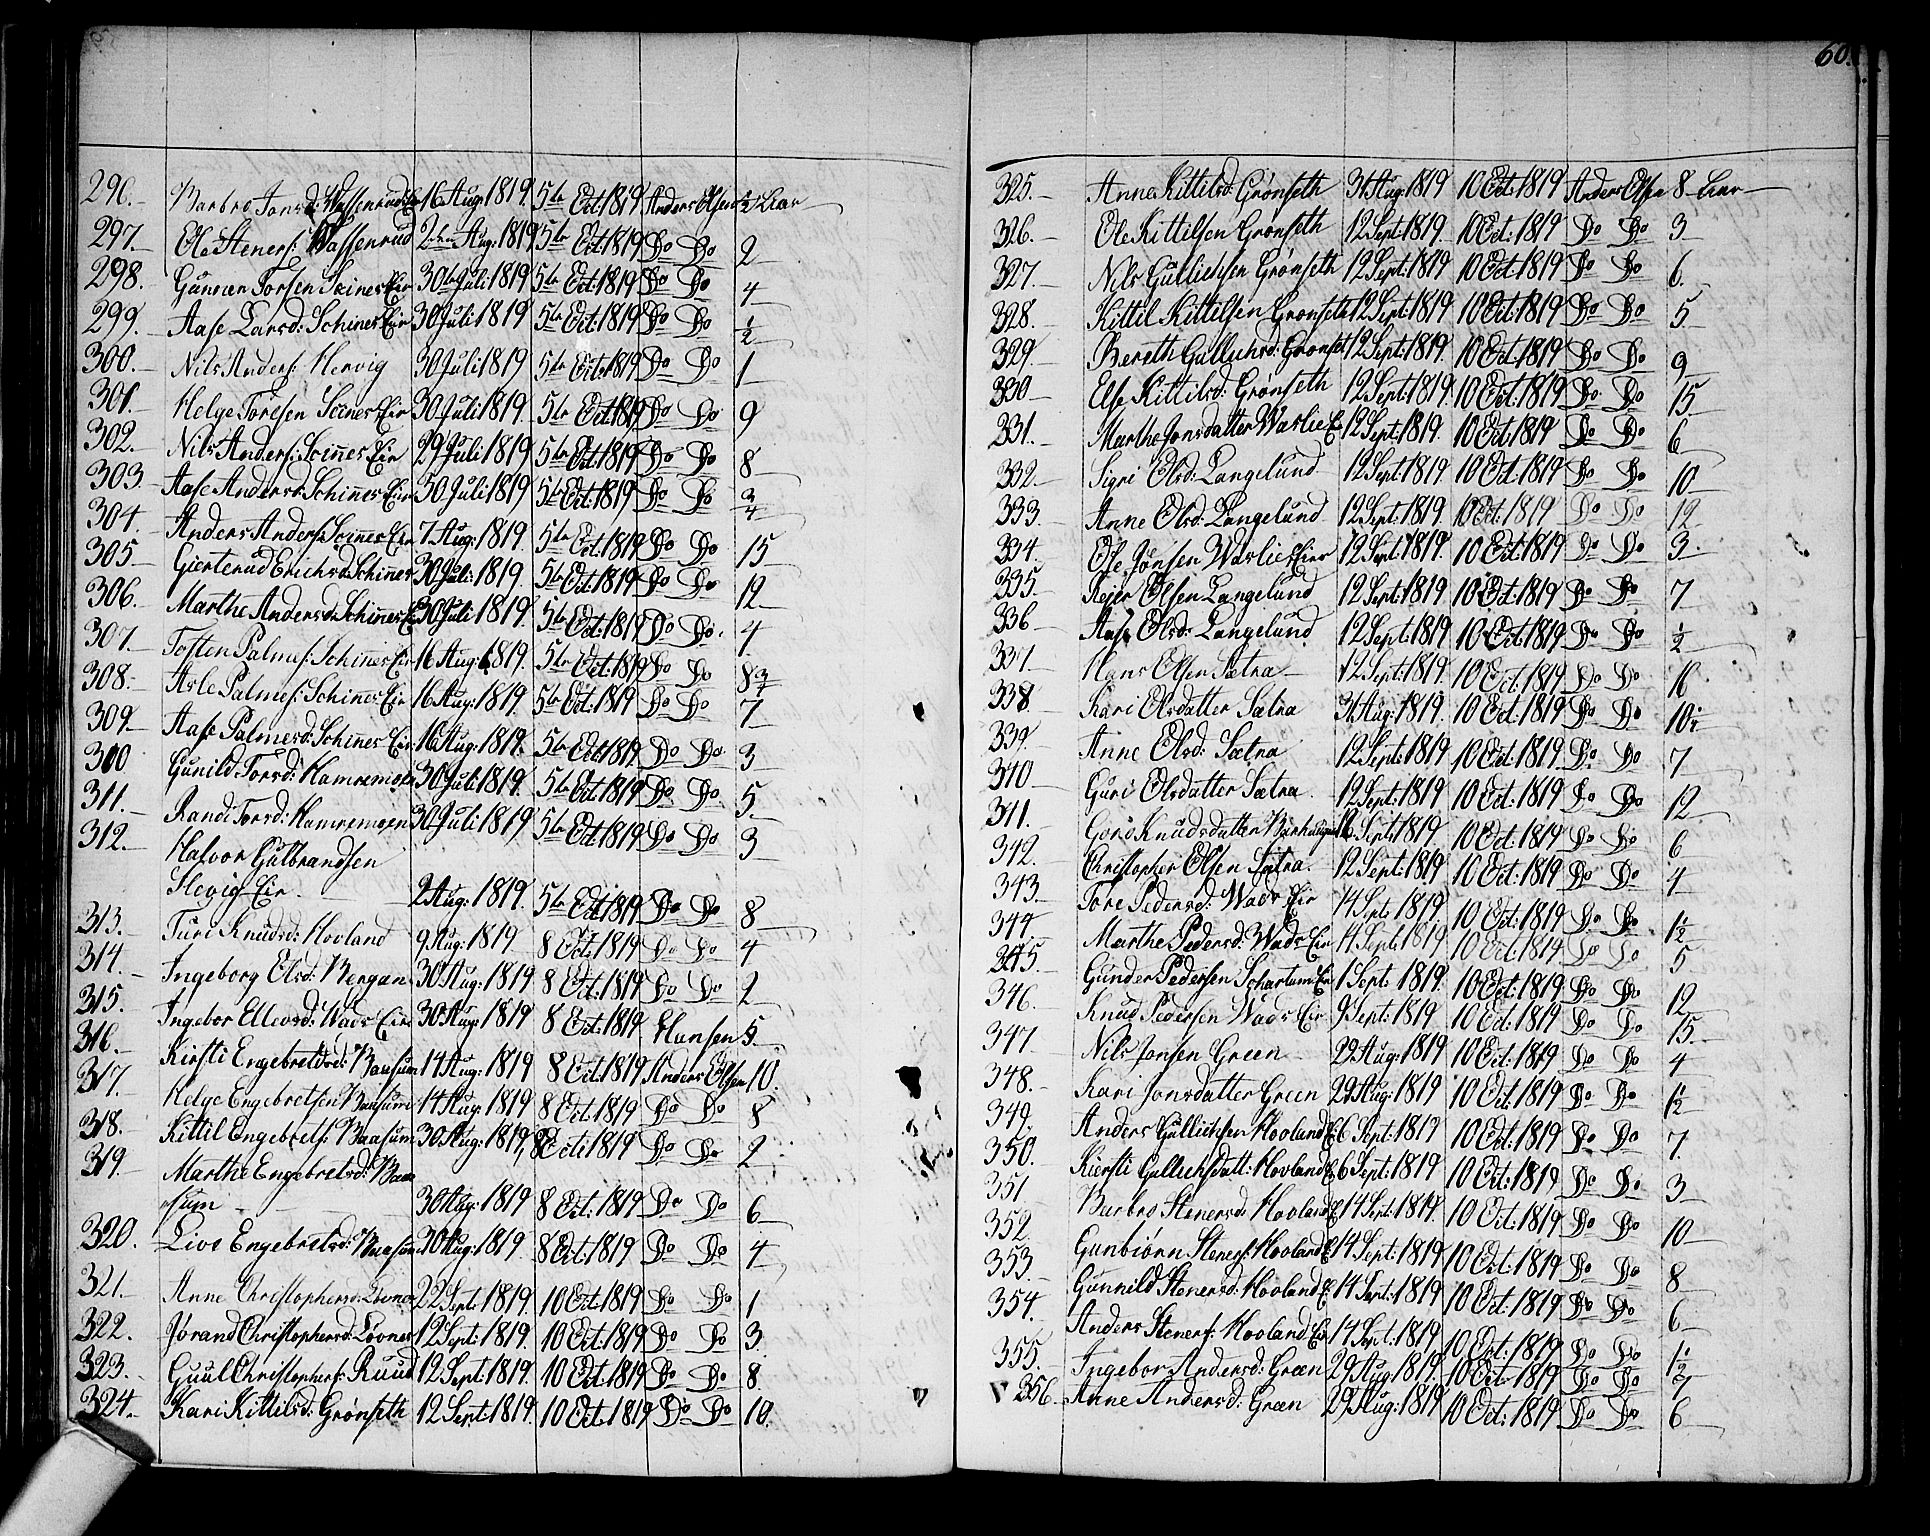 60.
296. Barbro Jonsd: Wassenrud Eie 16 Aug: 1819. 5te Oct 1819 Anders Olsen ½ Aar
297. Ole Steners: Wassenrud 2den Aug: 1819 5te Oct 1819 Do Do 2
298. Gunnar Torsen 30te Juli 1819 5te Oct: 1819 Do Do 4
299. Aase Larsd: Schines Eie 30 Juli 1819 5te Oct: 1819 Do Do ½
300. Nils Anders: Hervig 30 Juli 1819 5te Oct: 1819 Do Do 1
301. Helge Toresen Scines Eie 30 Juli 1819. 5te Oct 1819 Do Do 9
302. Nils Anders: Scines Eie 29 Juli 1819 5te Oct: 1819 Do Do 8
303. Aase Andersd: Schines Eie 30 Juli 1819 5te Oct: 1819 Do Do ¾
304. Anders Anders: Scines Eie 7 Aug: 1819. 5te Oct: 1819 Do Do 15
305. Gierterud Erichsd: Schines 30 Juli: 1819. 5te Oct 1819 Do Do 12
306. Marthe Andersd: Schines E 30 Juli 1819. 5te Oct: 1819 Do Do. 4
307. Tosten Palmes: Schines Eie 16 Aug: 1819. 5te Oct: 1819 Do Do 8¾
308. Asle Palmes: Schines Eie 16 Aug: 1819 5te Oct: 1819 Do Do 7
309. Aase Palmesd: Schines Eie 16 Aug: 1819. 5te Oct 1819 Do Do 3
300 Gunild Torsd: Hamremoen 30 Juli 1819. 5te Oct: 1819 Do Do 5.
311. Randi Torsd: Hamremoen 30 Juli 1819 5te Oct 1819 Do Do 3
312. Halvor Gulbrandsen
Hevig Eie. 2 Aug: 1819. 5te Oct 1819 Do Do 8
313. Turi Knudsd: Hovland 9 Aug: 1819 8 Oct: 1819 Do Do 4
314. Ingeborg Elsd: Bergan 30 Aug: 1819 8 Oct: 1819 Do Do 2
315. Ingebor Ellevsd: Wads Eie 30 Aug: 1819 8 Oct: 1819 Hansen 5
316. Kirsti Engebretsd: Baasum 14 Aug: 1819 8 Oct: 1819 Anders Olsen 10.
317. Helge Engebretsen Baasum 14 Aug: 1819 8 Oct: 1819 Do Do 8
318. Kittil Engebrets: Baasum 30 Aug: 1819, 8 Oct: 1819 Do Do 2
319. Marthe Engebretsd: Baa
sum 30 Aug: 1819 8 Oct: 1819 Do Do 6
320. Live Engebretsd: Baasum 30 Aug: 1819. 8 Oct: 1819 Do Do 4
321. Anne Christophersd: 22 Sept: 1819. 10 Oct: 1819 Do Do 1
322. Jorand Christophersd: Lovnes 12 Sept: 1819. 10 Oct: 1819 Do Do 3.
323. Guul Christophers: Ruud 12 Sept: 1819. 10 Oct 1819 Do Do 8
324. Kari Kittilsd: Grønseth 12 Sept: 1819. 10 Oct. 1819 Do Do 10.
325. Anne Kittilsd: Grønseth 31 Aug: 1819 10 Oct: 1819 Anders Olsen 8 Aar
326. Ole Kittilsen Grønseth 12 Sept: 1819. 10 Oct: 1819 Do Do 3
327. Nils Gullichsen Grønseth 12 Sept: 1819 10 Oct: 1819 Do Do 6.
328. Kittil Kittilsen Grønseth 12 Sept: 1819 10 Oct: 1819 Do Do 5
329. Bereth Gullichsd: Grønset 12 Sept: 1819. 10 Oct: 1819 Do Do 9
330 Else Kittilsd: Grønseth 12 Sept: 1819. 10 Oct: 1819 Do Do 15
331. Marthe Jonsdatter Waslie E 12 Sept: 1819. 10 Oct 1819 Do Do 6
332. Sigri Olsd: Langelund 12 Sept: 1819 10 Oct. 1819 Do Do 10
333. Anne Olsd: Langelund 12 Sept: 1819. 10 Oct: 1819 Do Do 12
334. Ole Jonsen Waslie Eie 12 Sept: 1819 10 Oct: 1819 Do Do 3.
335. Reier Olsen Langelund 12 Sept: 1819 10 Oct: 1819 Do Do 7
336 Aase Olsd: Langelund 12 Sept: 1819 10 Oct: 1819 Do Do ½
337 Hans Olsen Sætra 12 Sept: 1819. 10 Oct: 1819 Do Do 16
338 Kari Olsdatter Sætra 31 Aug: 1819. 10 Oct: 1819 Do Do 10½
339. Anne Olsd: Sætra 12 Sept: 1819 10 Oct: 1819 Do Do 7
340 Guri Olsdatter Sætra. 12 Sept: 1819 10 Oct: 1819 Do Do 12
341. Goro Knudsdatter Sept: 1819 10 Oct: 1819 Do Do 6
342. Christopher Olsen Sætra. 12 Sept: 1819 10 Oct: 1819 Do Do 4
343. Tore Pedersd: Wads Eie 14 Sept: 1819. 10 Oct: 1819 Do Do ½
344. Marthe Pedersd: Wads Eie 14 Sept: 1819 10 Oct: 1819 Do Do 5
345. Gunder Pedersen Schartum Eie 1 Sept 1819. 10 Oct: 1819 Do Do 12
346. Knud Pedersen Wads Eie 9 Sept: 1819 10 Oct: 1819 Do Do 15
347 Nils Jonsen Green 29 Aug: 1819 10 Oct: 1819 Do Do 4
348. Kari Jonsdatter Green 29 Aug: 1819 10 Oct: 1819 Do Do 1½
349. Anders Gullichsen Hovland E 6 Sept: 1819 10 Oct: 1819 Do Do 7.
350. Kiersti Gullichsdatt: Hovland E 6 Sept: 1819 10 Oct: 1819 Do Do 3
351 Barbro Stenersd: Hovland E 14 Sept: 1819. 10 Oct: 1819 Do Do 10
352 Gunbiørn Steners: Hovland E 14 Sept: 1819 10 Oct: 1819 Do Do 8
353. Gunnild Stenersd: Hovland E 14 Sept: 1819 10 Oct: 1819 Do Do 6
354. Anders Steners: Hovland Eie 14 Sept: 1819 10 Oct: 1819 Do Do 1½
355. Ingebor Andersd: Græn 29 Aug: 1819. 10 Oct: 1819 Do Do 7
356. Anne Andersd: Græn 29 Aug: 1819 10 Oct: 1819 Do Do 6